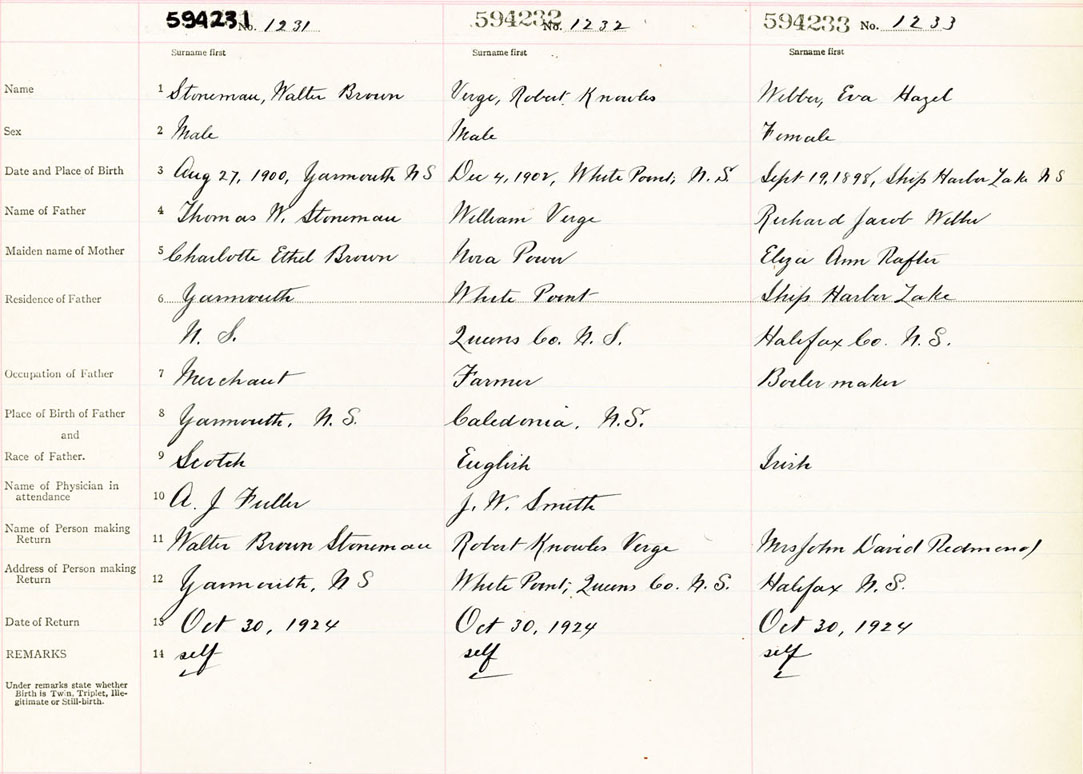 594231 No. 1231 594232 No. 1232 594233 No. 1233
Surname first Surname first Surname first
Name 1 Stoneman, Walter Brown Verge, Robert Knowles Webber, Eva Hazel
Sex 2 Male Male Female
Date and Place of Birth 3 Aug 27, 1900, Yarmouth N S Dec 4, 1902, White Point, N. S. Sept 19, 1898, Ship Harbor Lake N S
Name of Father 4 Thomas W. Stoneman William Verge Richard Jacob Webber
Maiden name of Mother 5 Charlotte Ethel Brown Nora Power Eliza Ann Rafter
Residence of Father 6 Yarmouth White Point Ship Harbor Lake
N. S. Queens Co. N. S. Halifax Co. N. S.
Occupation of Father 7 Merchant Farmer Boiler maker
Place of Birth of Father 8 Yarmouth, N. S. Caledonia, N. S.
and
Race of Father. 9 Scotch English Irish
Name of Physician in
attendance 10 A. J Fuller J. W. Smith
Name of Person making
Return 11 Walter Brown Stoneman Robert Knowles Verge Mrs John David Redmond
Address of Person making
Return 12 Yarmouth, N S White Point, Queens Co. N. S. Halifax N. S.
Date of Return 13 Oct 30, 1924 Oct 30, 1924 Oct 30, 1924
REMARKS 14 self self self
Under remarks state whether
Birth is Twin, Triplet, Ille-
gitimate or Still-birth.